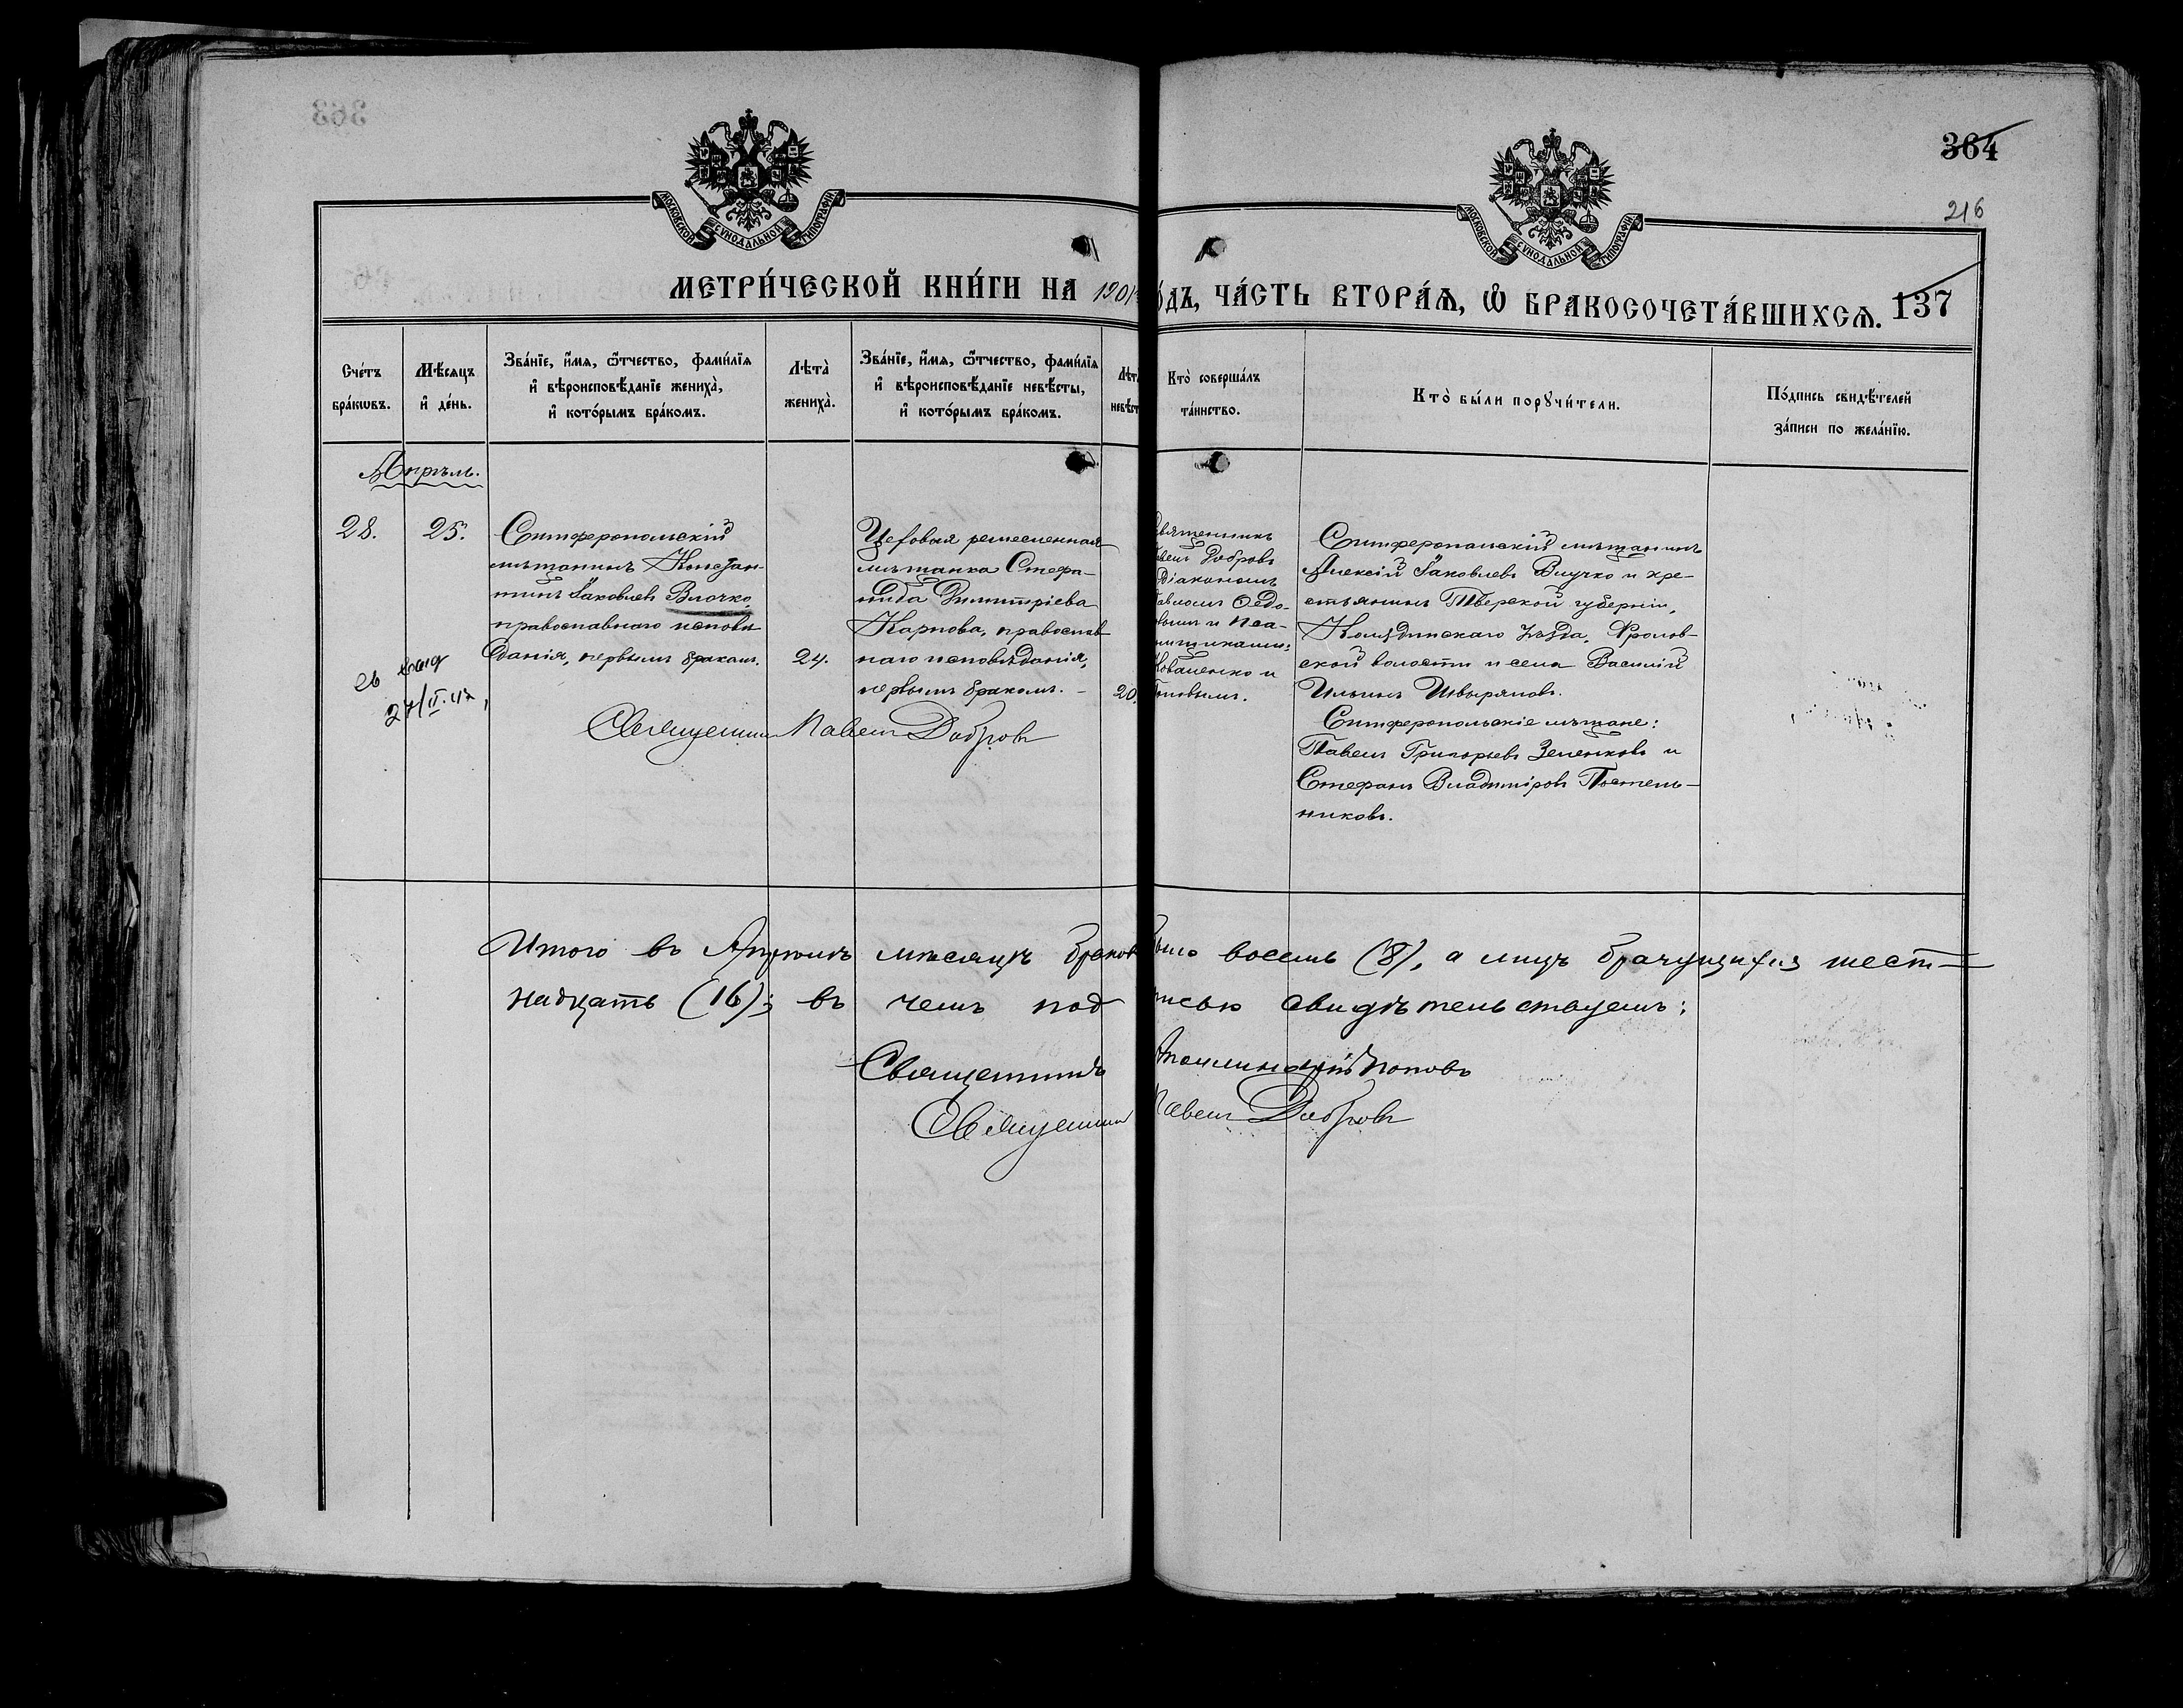 364
216
МОСКОВСКОЙ СѴНОДАЛЬНОЙ ТИПОГРАФІИ.
МОСКОВСКОЙ СѴНОДАЛЬНОЙ ТИПОГРАФІИ.
МЕТРИ́ЧЕСКОЙ КНИ́ГИ НА 1901
О́ДЪ, ЧА́СТЬ ВТОРА́Ѧ, Ѡ҆ БРАКОСОЧЕТА́ВШИХСѦ. 137
Сче́тъ бра́кѡвъ.
Мѣ́сѧцъ и҆ де́нь.
Зва́нїе, и҆́мѧ, ѻ҆́тчество, фами́лїѧ
и҆ вѣроисповѣ́данїе жениха̀,
и҆ кото́рымъ бра́комъ.
Лѣта̀ жениха̀.
Зва́нїе, и҆́мѧ, ѻ҆́тчество, фами́лїѧ
и҆ вѣроисповѣ́данїе невѣ́сты,
и҆ кото́рымъ бра́комъ.
Лѣта
невѣст
Кто̀ соверша́лъ
та́инство.
Кто̀ бы́ли порꙋчи́тели.
По́дпись свидѣ́телей
за́писи по жела́нїю.
Апрѣль.
28.
25.
Симферопольскій
мѣщанинъ Констан-
тинъ Іаковлевъ Влочко,
православнаго исповѣ
данія, первымъ бракомъ.
24.
Цеховая ремесленная
мѣщанка Стефа-
нида Димитріева
Карпова, православ
наго исповѣданія,
первымъ бракомъ. -
20.
Священникъ
Павелъ Добровъ
Діакономъ
Павломъ Ѳедо-
вымъ и Пса-
ломщиками:
Коваленко и
Поповымъ.
Симферопольскій мѣщанинъ
Алексій Іаковлевъ Влучко и кре-
стьянинъ Тверской губерніи,
Колядинскаго уѣзда, Фролов-
ской волости и села Василій
Ильинъ Швыряновъ.
Симферопольскіе мѣщане:
Павелъ Григорьевъ Зеленковъ и
Стефанъ Владиміровъ Постель-
никовъ.
27/II.42,
Священникъ Павелъ Добровъ
Итого въ Апрѣлѣ мѣсяцѣ браковъ было восемь (8), а лицъ брачущихся шест-
надцать (16); въ чемъ подписью свидѣтельствуемъ:
Священникъ Аполлинарій Поповъ
Священникъ Павелъ Добровъ